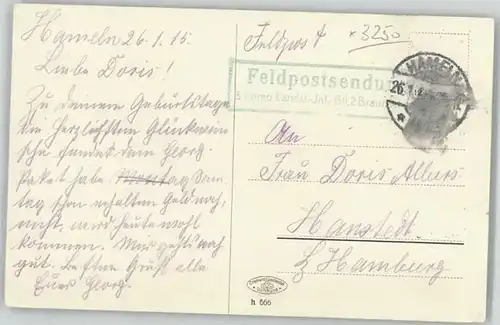 Hameln 26.1.15.
Liebe Doris!
Zu deinem Geburtstage
die herzlichsten Glückwün
sche sendet dein Georg.
Paket habe Montag Son
tag schon erhalten Geld noch
nicht, wird heute wohl
kommen. Mir gehts noch
gut. Besten Gruß alle
Euer Georg.
Feldpost
3250
Feldpostsendung
HAMELN
26.1.
An
Frau Doris Albers
Hanstedt
b/ Hamburg
h 666